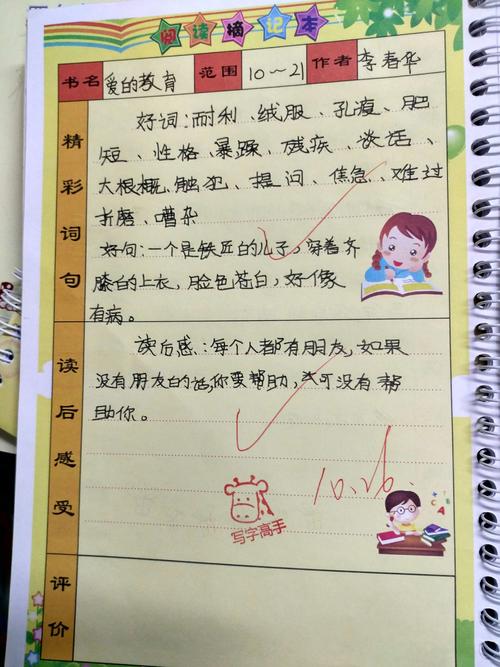 阅读摘记本
书名 爱的教育 范围 10～21 作者 李春华
精彩词句
好词：耐利、绒服、孔瘦、肥
短、性格、暴躁、残疾、谈话、
大根概、触犯、提问、焦急、难过
折磨、嘈杂
好句：一个是铁匠的儿子，穿着齐
膝的上衣，脸色苍白，好像
有病。
读后感受
读后感：每个人都有朋友，如果
没有朋友的话，你要帮助，
没有帮
助你。
写字高手
10.26.
评价